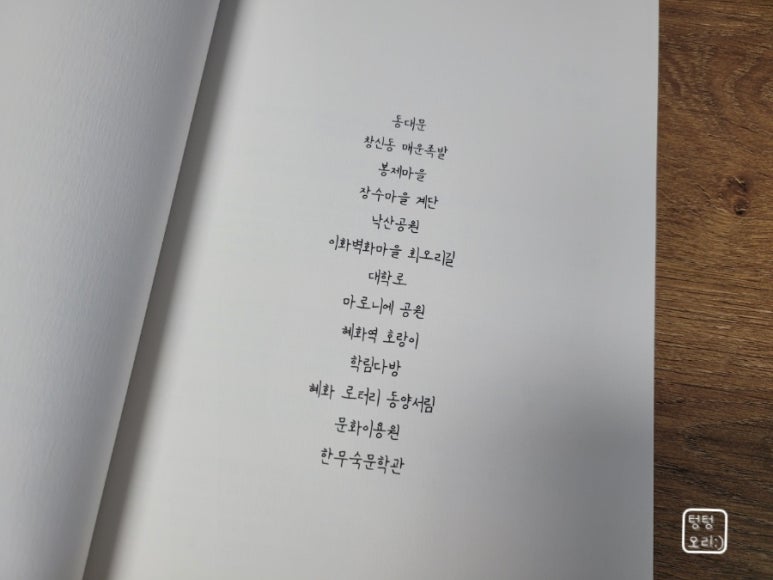 동대문
창신동 매운족발
봉제마을
장수마을 계단
낙산공원
이화벽화마을 회오리길
대학로
마로니에 공원
혜화역 호랑이
학림다방
혜화 로터리 동양서림
문화이용원
한무숙문학관
텅텅
오리:)